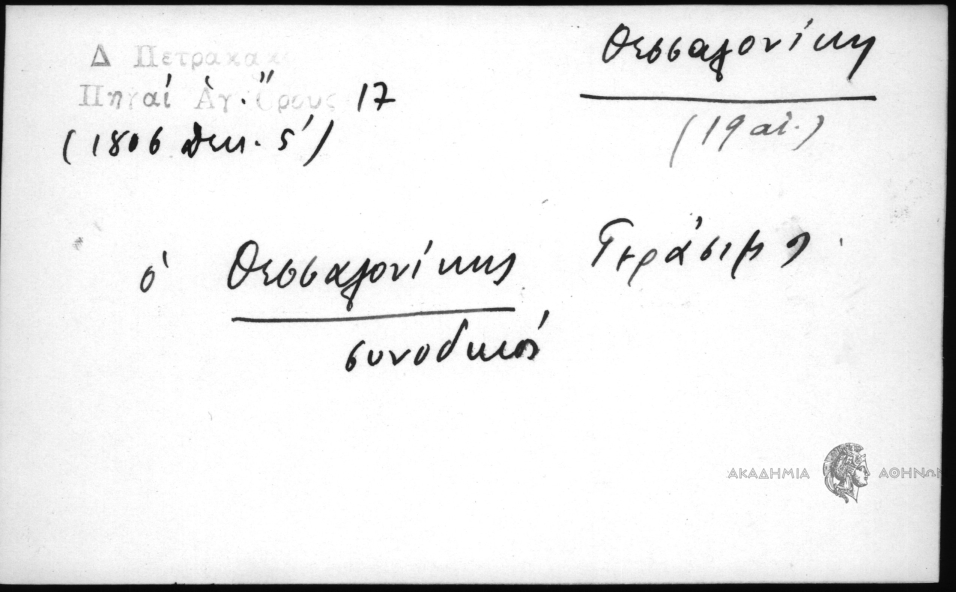 Δ Πετρακακ
Θεσσαλονίκη
Πηγαί Ἁγ. Ὄρους 17
(1806 Δεκ. ς')
(19 αἰ.)
ὁ Θεσσαλονίκης Γεράσιμος
συνοδικός
ΑΚΑΔΗΜΙΑ ΑΘΗΝΩΝ